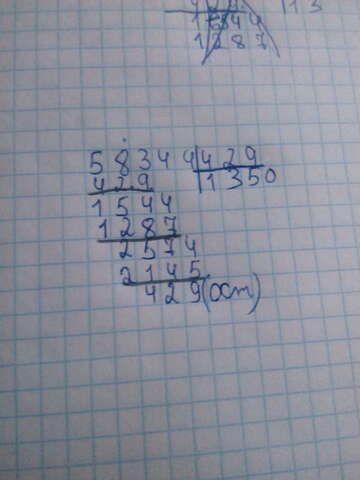 1 3
1 5 4 4
1 2 8 7
5 8 3 4 4 | 4 2 9
4 2 9 | 1 3 5 0
1 5 4 4
1 2 8 7
2 5 7 4
2 1 4 5
4 2 9 (ост)